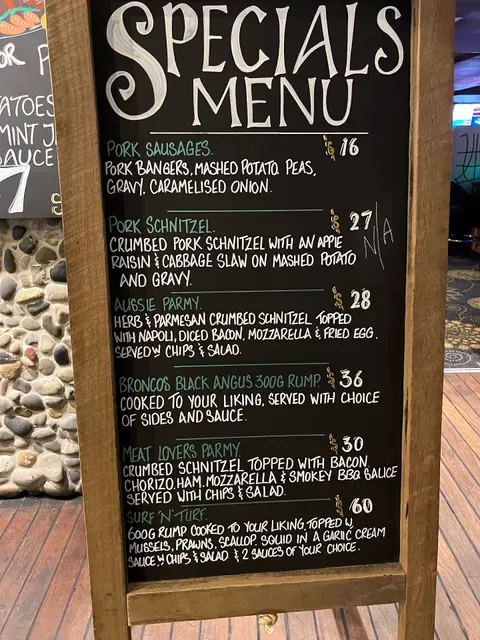 SPECIALS
MENU
PORK SAUSAGES. $ 16
PORK BANGERS, MASHED POTATO. PEAS,
GRAVY. CARAMELISED ONION.
PORK SCHNITZEL. $ 27
N/A
CRUMBED PORK SCHNITZEL WITH AN APPLE
RAISIN & CABBAGE SLAW ON MASHED POTATO
AND GRAVY.
AUSSIE PARMY. $ 28
HERB & PARMESAN CRUMBED SCHNITZEL TOPPED
WITH NAPOLI, DICED BACON, MOZZARELLA & FRIED EGG.
SERVED W CHIPS & SALAD.
BRONCOS BLACK ANGUS 300G RUMP. $ 36
COOKED TO YOUR LIKING, SERVED WITH CHOICE
OF SIDES AND SAUCE.
MEAT LOVERS PARMY. $ 30
CRUMBED SCHNITZEL TOPPED WITH BACON,
CHORIZO, HAM, MOZZARELLA & SMOKEY BBQ SAUCE
SERVED WITH CHIPS & SALAD.
SURF 'N' TURF. $ 60
600G RUMP COOKED TO YOUR LIKING, TOPPED W.
MUSSELS, PRAWNS, SCALLOP. SQUID IN A GARLIC CREAM
SAUCE W CHIPS & SALAD & 2 SAUCES OF YOUR CHOICE.
OR P
ATOES
MINT J
SAUCE
7